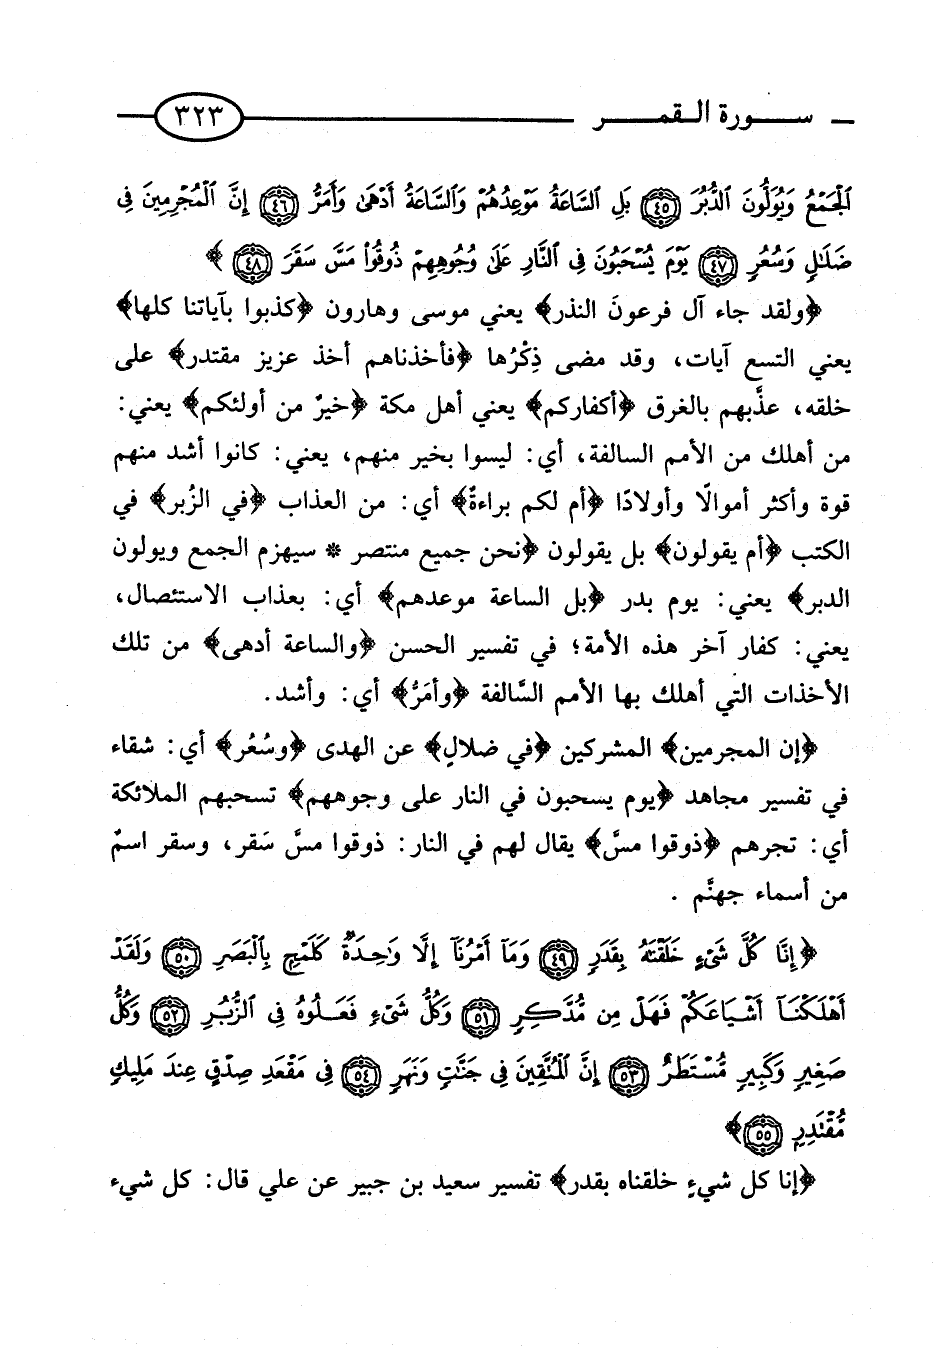 سورة القمر ٣٢٣
ٱلۡجَمۡعُ وَيُوَلُّونَ ٱلدُّبُرَ ٤٥ بَلِ ٱلسَّاعَةُ مَوۡعِدُهُمۡ وَٱلسَّاعَةُ أَدۡهَىٰ وَأَمَرُّ ٤٦ إِنَّ ٱلۡمُجۡرِمِينَ فِي
ضَلَٰلٖ وَسُعُرٖ ٤٧ يَوۡمَ يُسۡحَبُونَ فِي ٱلنَّارِ عَلَىٰ وُجُوهِهِمۡ ذُوقُواْ مَسَّ سَقَرَ ٤٨ ﴾
﴿ولقد جاء آل فرعونَ النذر﴾ يعني موسى وهارون ﴿كذبوا بآياتنا كلها﴾
يعني التسع آيات، وقد مضى ذِكْرُها ﴿فأخذناهم أخذ عزيز مقتدر﴾ على
خلقه، عذَّبهم بالغرق ﴿أكفاركم﴾ يعني أهل مكة ﴿خيرٌ من أولئكم﴾ يعني:
من أهلك من الأمم السالفة، أي: ليسوا بخير منهم، يعني: كانوا أشد منهم
قوة وأكثر أموالًا وأولادًا ﴿أم لكم براءةٌ﴾ أي: من العذاب ﴿في الزُبر﴾ في
الكتب ﴿أم يقولون﴾ بل يقولون ﴿نحن جميع منتصر * سيهزم الجمع ويولون
الدبر﴾ يعني: يوم بدر ﴿بل الساعة موعدهم﴾ أي: بعذاب الاستئصال،
يعني: كفار آخر هذه الأمة؛ في تفسير الحسن ﴿والساعة أدهى﴾ من تلك
الأخذات التي أهلك بها الأمم السَّالفة ﴿وأمَرُّ﴾ أي: وأشد.
﴿إن المجرمين﴾ المشركين ﴿في ضلالٍ﴾ عن الهدى ﴿وسُعُر﴾ أي: شقاء
في تفسير مجاهد ﴿يوم يسحبون في النار على وجوههم﴾ تسحبهم الملائكة
أي: تجرهم ﴿ذوقوا مسَّ﴾ يقال لهم في النار: ذوقوا مسَّ سَقر، وسقر اسمٌ
من أسماء جهنَّم .
﴿إِنَّا كُلَّ شَيۡءٍ خَلَقۡنَٰهُ بِقَدَرٖ ٤٩ وَمَآ أَمۡرُنَآ إِلَّا وَٰحِدَةٞ كَلَمۡحِۭ بِٱلۡبَصَرِ ٥٠ وَلَقَدۡ
أَهۡلَكۡنَآ أَشۡيَاعَكُمۡ فَهَلۡ مِن مُّدَّكِرٖ ٥١ وَكُلُّ شَيۡءٖ فَعَلُوهُ فِي ٱلزُّبُرِ ٥٢ وَكُلُّ
صَغِيرٖ وَكَبِيرٖ مُّسۡتَطَرٌ ٥٣ إِنَّ ٱلۡمُتَّقِينَ فِي جَنَّٰتٖ وَنَهَرٖ ٥٤ فِي مَقۡعَدِ صِدۡقٍ عِندَ مَلِيكٖ
مُّقۡتَدِرِۭ ٥٥﴾
﴿إنا كل شيءٍ خلقناه بقدر﴾ تفسير سعيد بن جبير عن علي قال: كل شيء